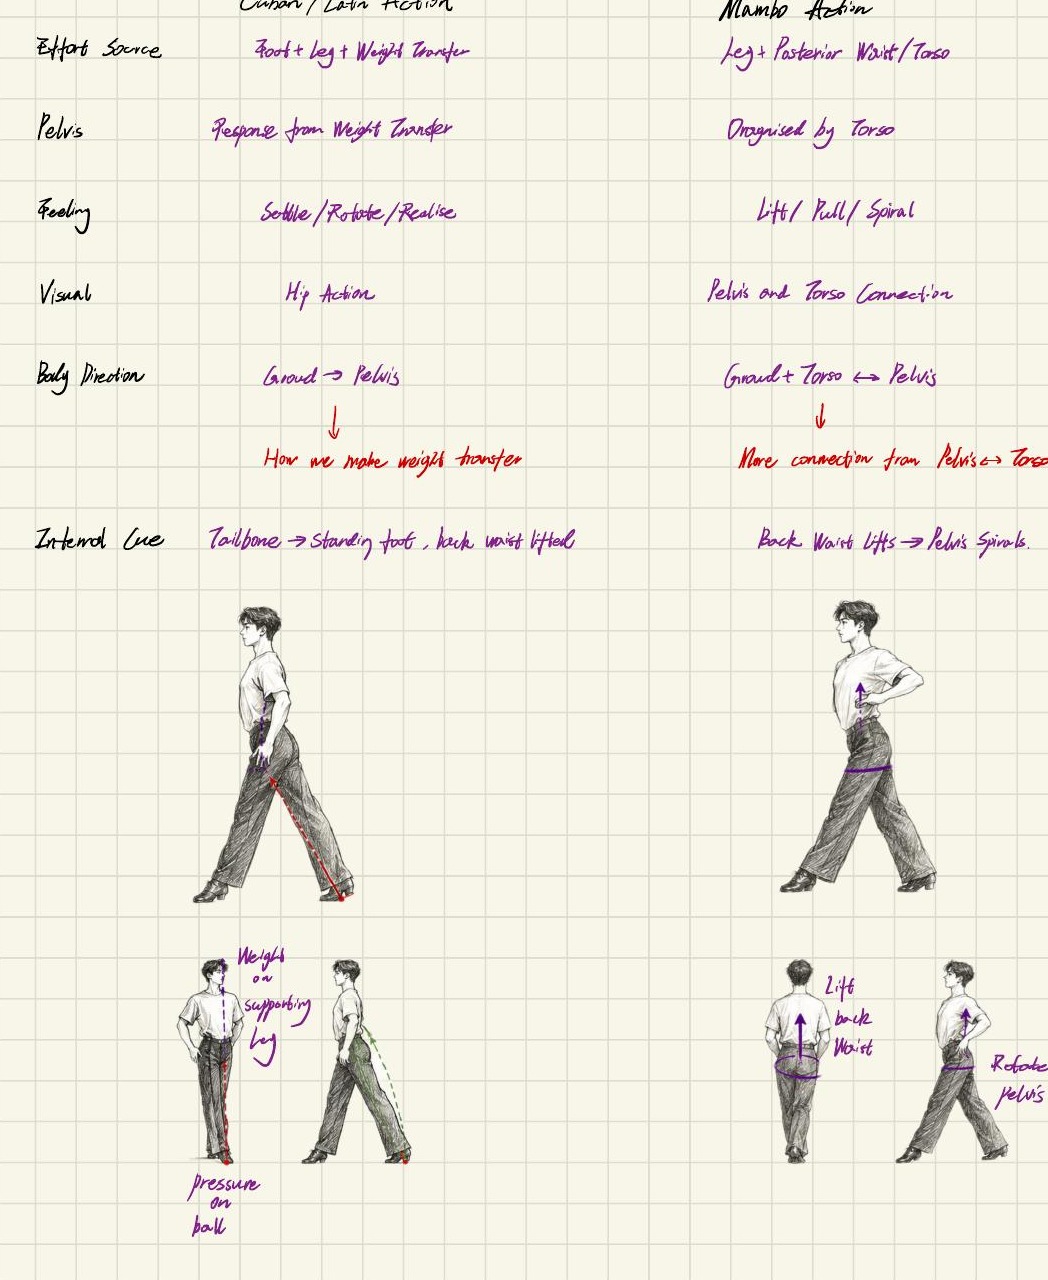 Cuban/Latin Action Mambo Action
Effort Source Foot + Leg + Weight Transfer Leg + Posterior Waist/Torso
Pelvis Response from Weight Transfer Oragnised by Torso
Feeling Settle/Rotate/Realise Lift/ Pull/ Spiral
Visual Hip Action Pelvis and Torso Connection
Body Direction Groud → Pelvis Groud + Torso ↔ Pelvis
How we make weight transfer More connection from Pelvis ↔ Torso
Internal Cue Tailbone → Standing foot, back waist lifted Back Waist Lifts → Pelvis Spirals.
Weight
on
supporting
Leg
pressure
on
ball
Lift
back
Waist
Rotate
pelvis